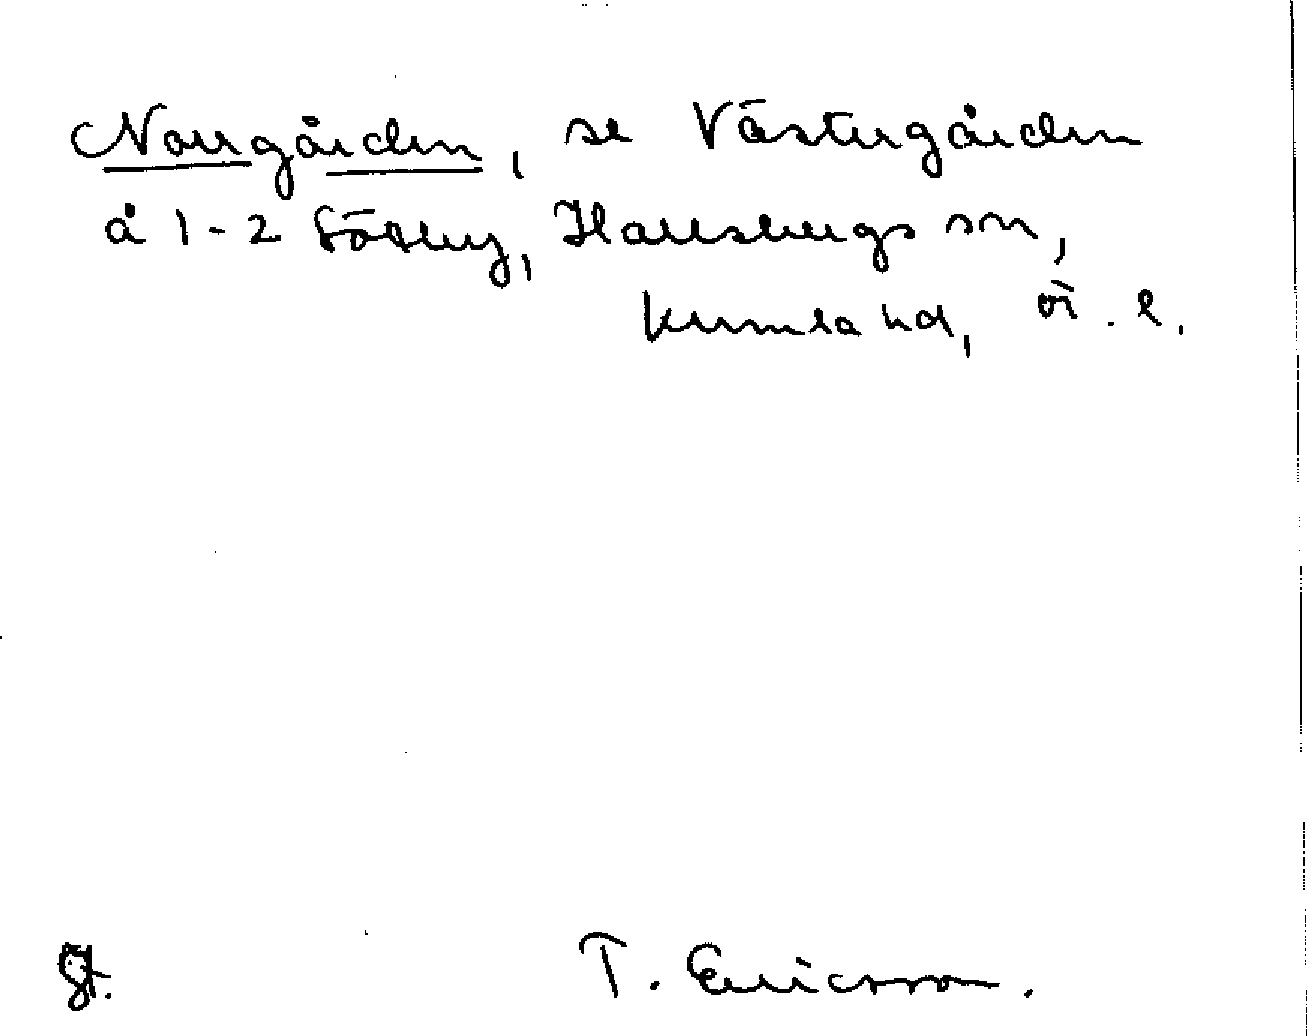 Norrgården, se Västergården
å 1-2 Söderby, Hallsbergs sn,
Kumla hd, ör. l.
T. Ericsson.